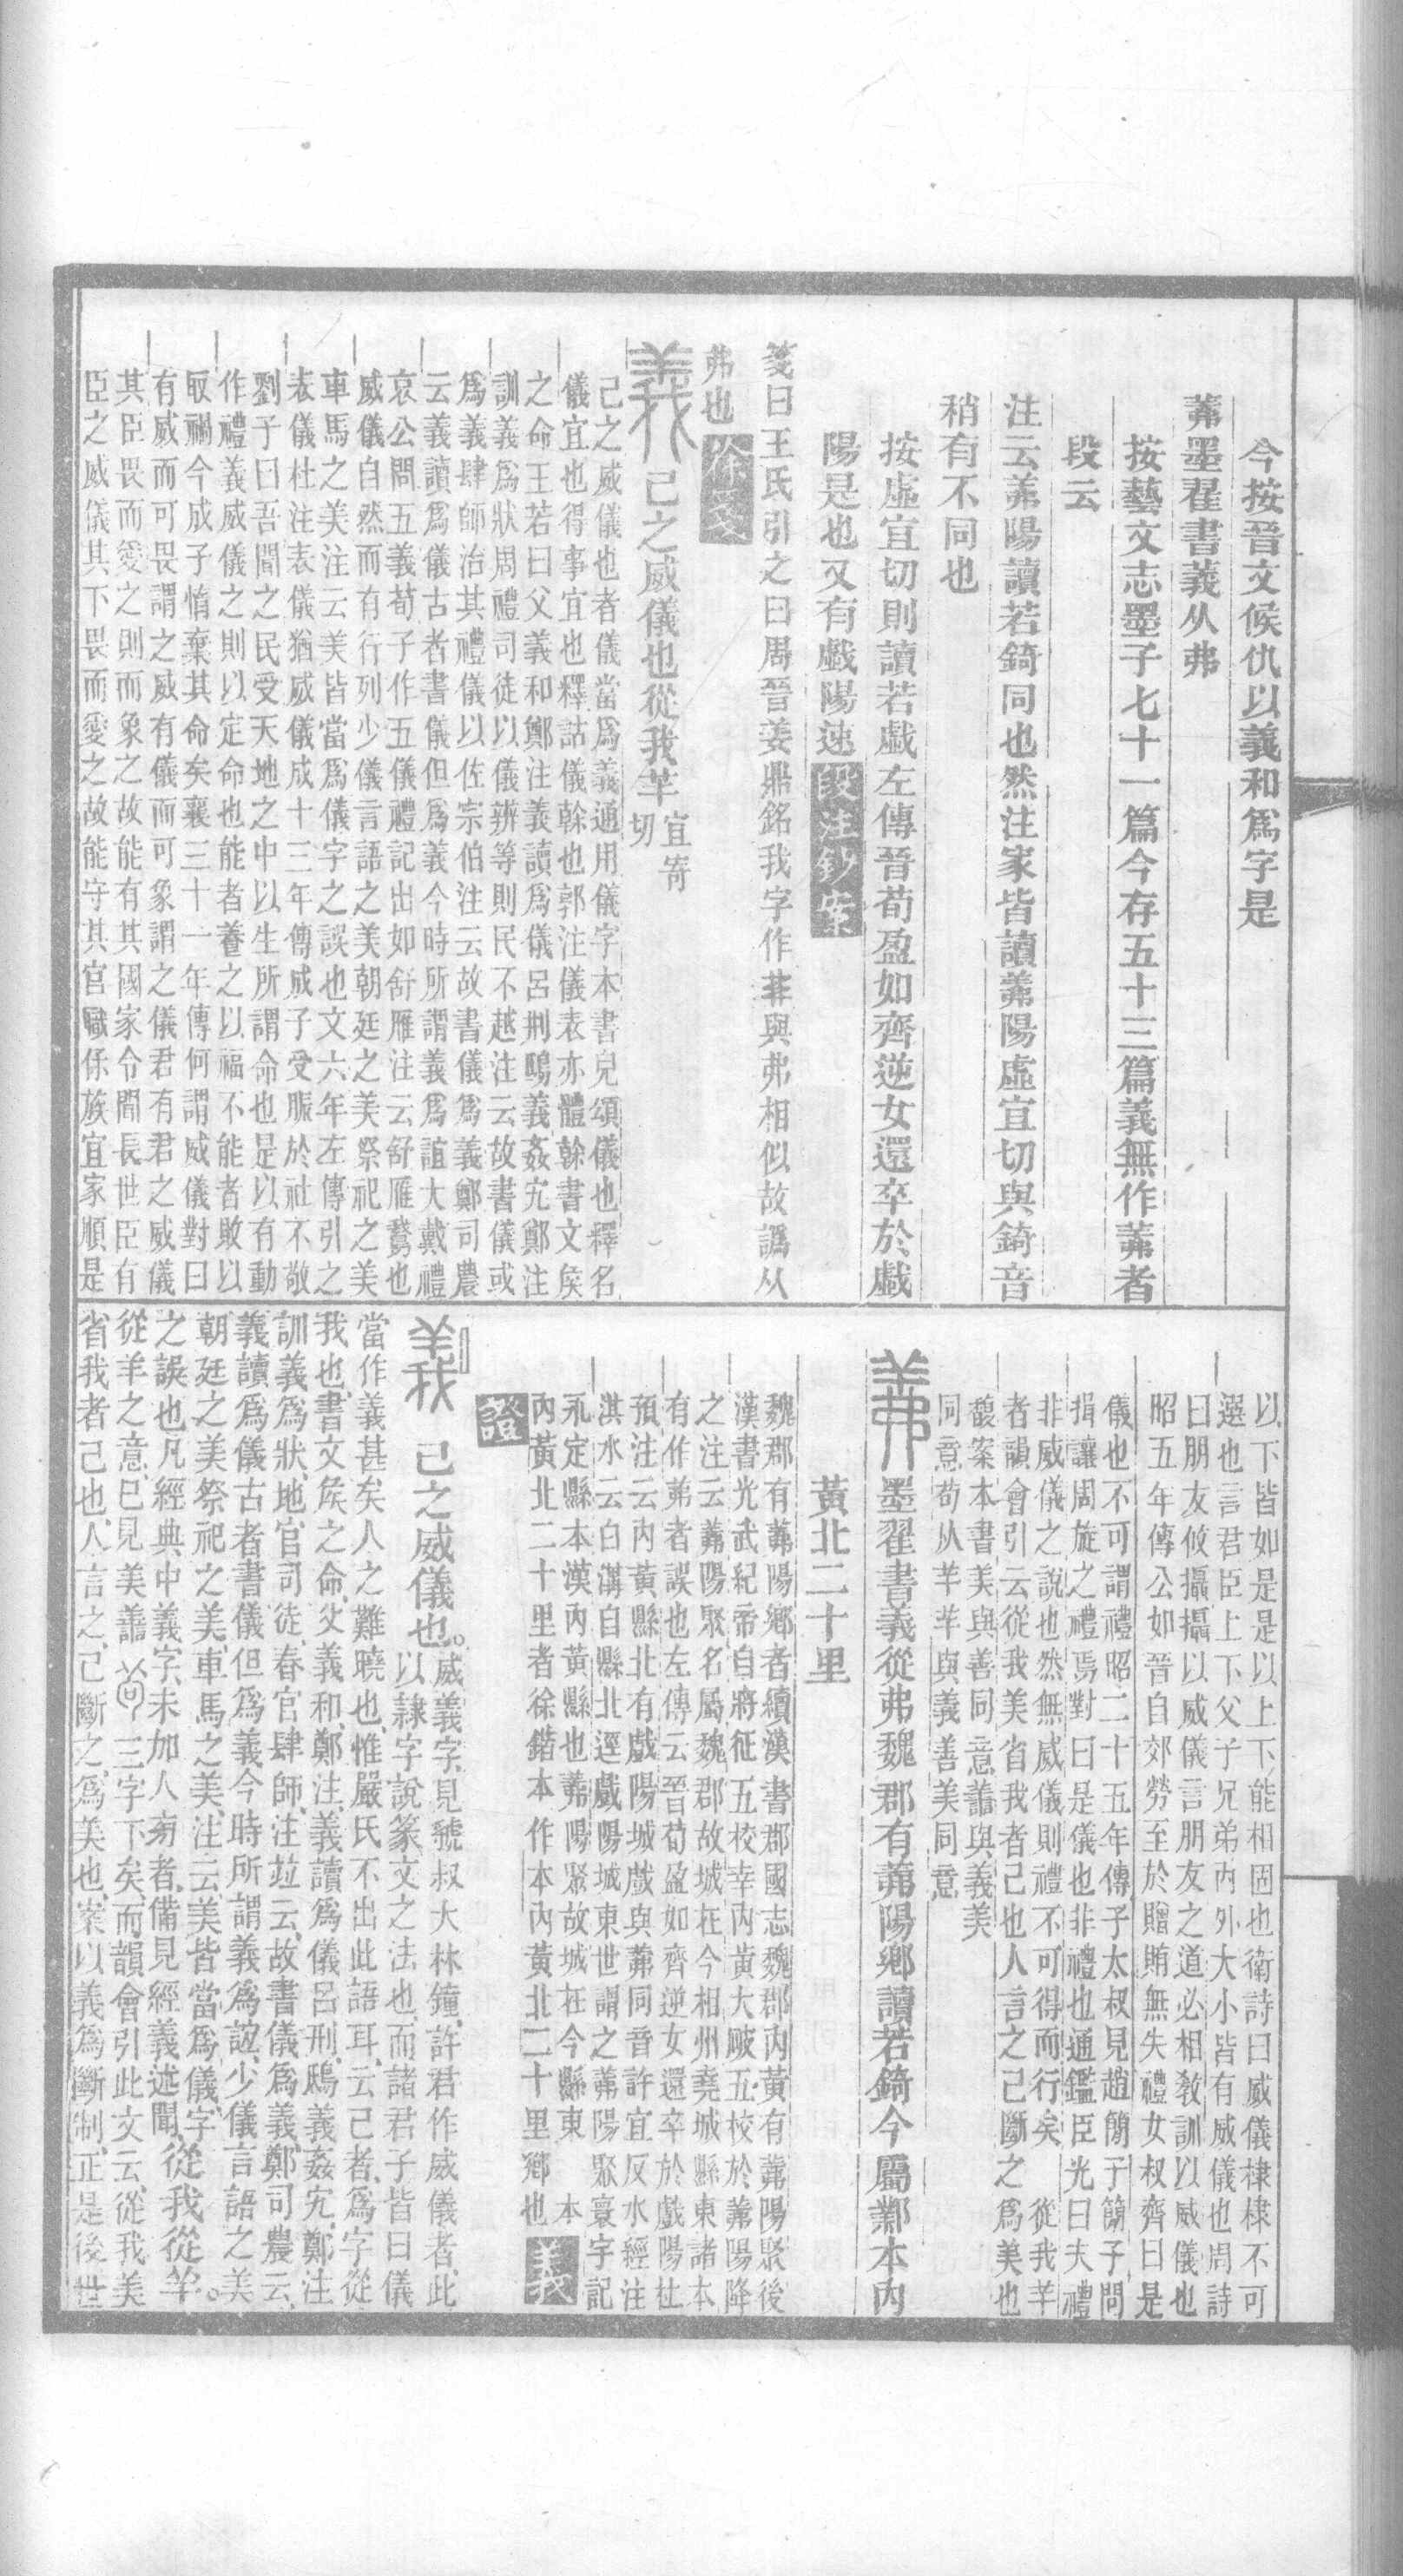 今按晉文候仇以義和爲字是
羛墨翟書義从弗
按藝文志墨子七十一篇今存五十三篇義無作羛者
段云
注云羛陽讀若錡同也然注家皆讀羛陽虛宜切與錡音
稍有不同也
按虛宜切則讀若戲左傳晉荀盈如齊逆女還卒於戲
陽是也又有戲陽速段注鈔案
箋曰王氏引之曰周晉姜鼎銘我字作𢦓與弗相似故譌从
弗也徐箋
義己之威儀也從我羊宜寄切
己之威儀也者儀當爲義通用儀字本書皃頌儀也釋名
儀宜也得事宜也釋詁儀榦也郭注儀表亦體榦書文矦
之命王若曰父義和鄭注義讀爲儀呂刑鴟義姦宄鄭注
訓義爲狀周禮司徒以儀辨等則民不越注云故書儀或
爲義肆師治其禮儀以佐宗伯注云故書儀爲義鄭司農
云義讀爲儀古者書儀但爲義今時所謂義爲誼大戴禮
哀公問五義荀子作五儀禮記出如舒雁注云舒雁鵞也
威儀自然而有行列少儀言語之美朝廷之美祭祀之美
車馬之美注云美皆當爲儀字之誤也文六年左傳引之
表儀杜注表儀猶威儀成十三年傳成子受脤於社不敬
劉子曰吾聞之民受天地之中以生所謂命也是以有動
作禮義威儀之則以定命也能者養之以福不能者敗以
取禍今成子惰棄其命矣襄三十一年傳何謂威儀對曰
有威而可畏謂之威有儀而可象謂之儀君有君之威儀
其臣畏而愛之則而象之故能有其國家令聞長世臣有
臣之威儀其下畏而愛之故能守其官職保族宜家順是
以下皆如是是以上下能相固也衛詩曰威儀棣棣不可
選也言君臣上下父子兄弟內外大小皆有威儀也周詩
曰朋友攸攝攝以威儀言朋友之道必相敎訓以威儀也
昭五年傳公如晉自郊勞至於贈賄無失禮女叔齊曰是
儀也不可謂禮昭二十五年傳子太叔見趙簡子簡子問
揖讓周旋之禮焉對曰是儀也非禮也通鑑臣光曰夫禮
非威儀之說也然無威儀則禮不可得而行矣　從我羊
者韻會引云從我美省我者己也人言之己斷之爲美也
馥案本書美與善同意譱與義美
同意苟从羊羊與義善美同意
羛墨翟書義從弗魏郡有羛陽鄉讀若錡今屬鄴本內
黃北二十里
魏郡有羛陽鄉者續漢書郡國志魏郡內黃有羛陽聚後
漢書光武紀帝自將征五校幸內黃大敗五校於羛陽降
之注云羛陽聚名屬魏郡故城在今相州堯城縣東諸本
有作弟者誤也左傳云晉荀盈如齊逆女還卒於戲陽杜
預注云內黃縣北有戲陽城戲與羛同音許宜反水經注
淇水云白溝自縣北逕戲陽城東世謂之羛陽聚寰宇記
永定縣本漢內黃縣也羛陽聚故城在今縣東　本
內黃北二十里者徐鍇本作本內黃北二十里鄉也義
證
義　己之威儀也。威義字見虢叔大林鐘、許君作威儀者、此
以隸字說篆文之法也、而諸君子皆曰儀
當作義甚矣人之難曉也、惟嚴氏不出此語耳、云己者、爲字從
我也、書文矦之命、父義和、鄭注、義讀爲儀呂刑、鴟義姦宄、鄭注
訓義爲狀、地官司徒、春官肆師、注竝云、故書儀爲義、鄭司農云、
義讀爲儀古者書儀但爲義今時所謂義爲誼、少儀言語之美
朝廷之美祭祀之美、車馬之美、注云、美皆當爲儀字
之誤也、凡經典中義字、未加人㫄者、備見經義述聞、從我從羊。
從羊之意、已見美譱苟三字下矣、而韻會引此文云、從我美
省我者己也、人言之、己斷之、爲美也、案以義爲斷制、正是後世